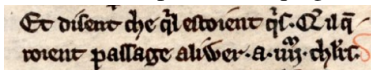 Et disent che q̓l estoient q̓s. Q̓ il q̄
roient passage aliwer · a · iiijᵐ · chlr̄s ·